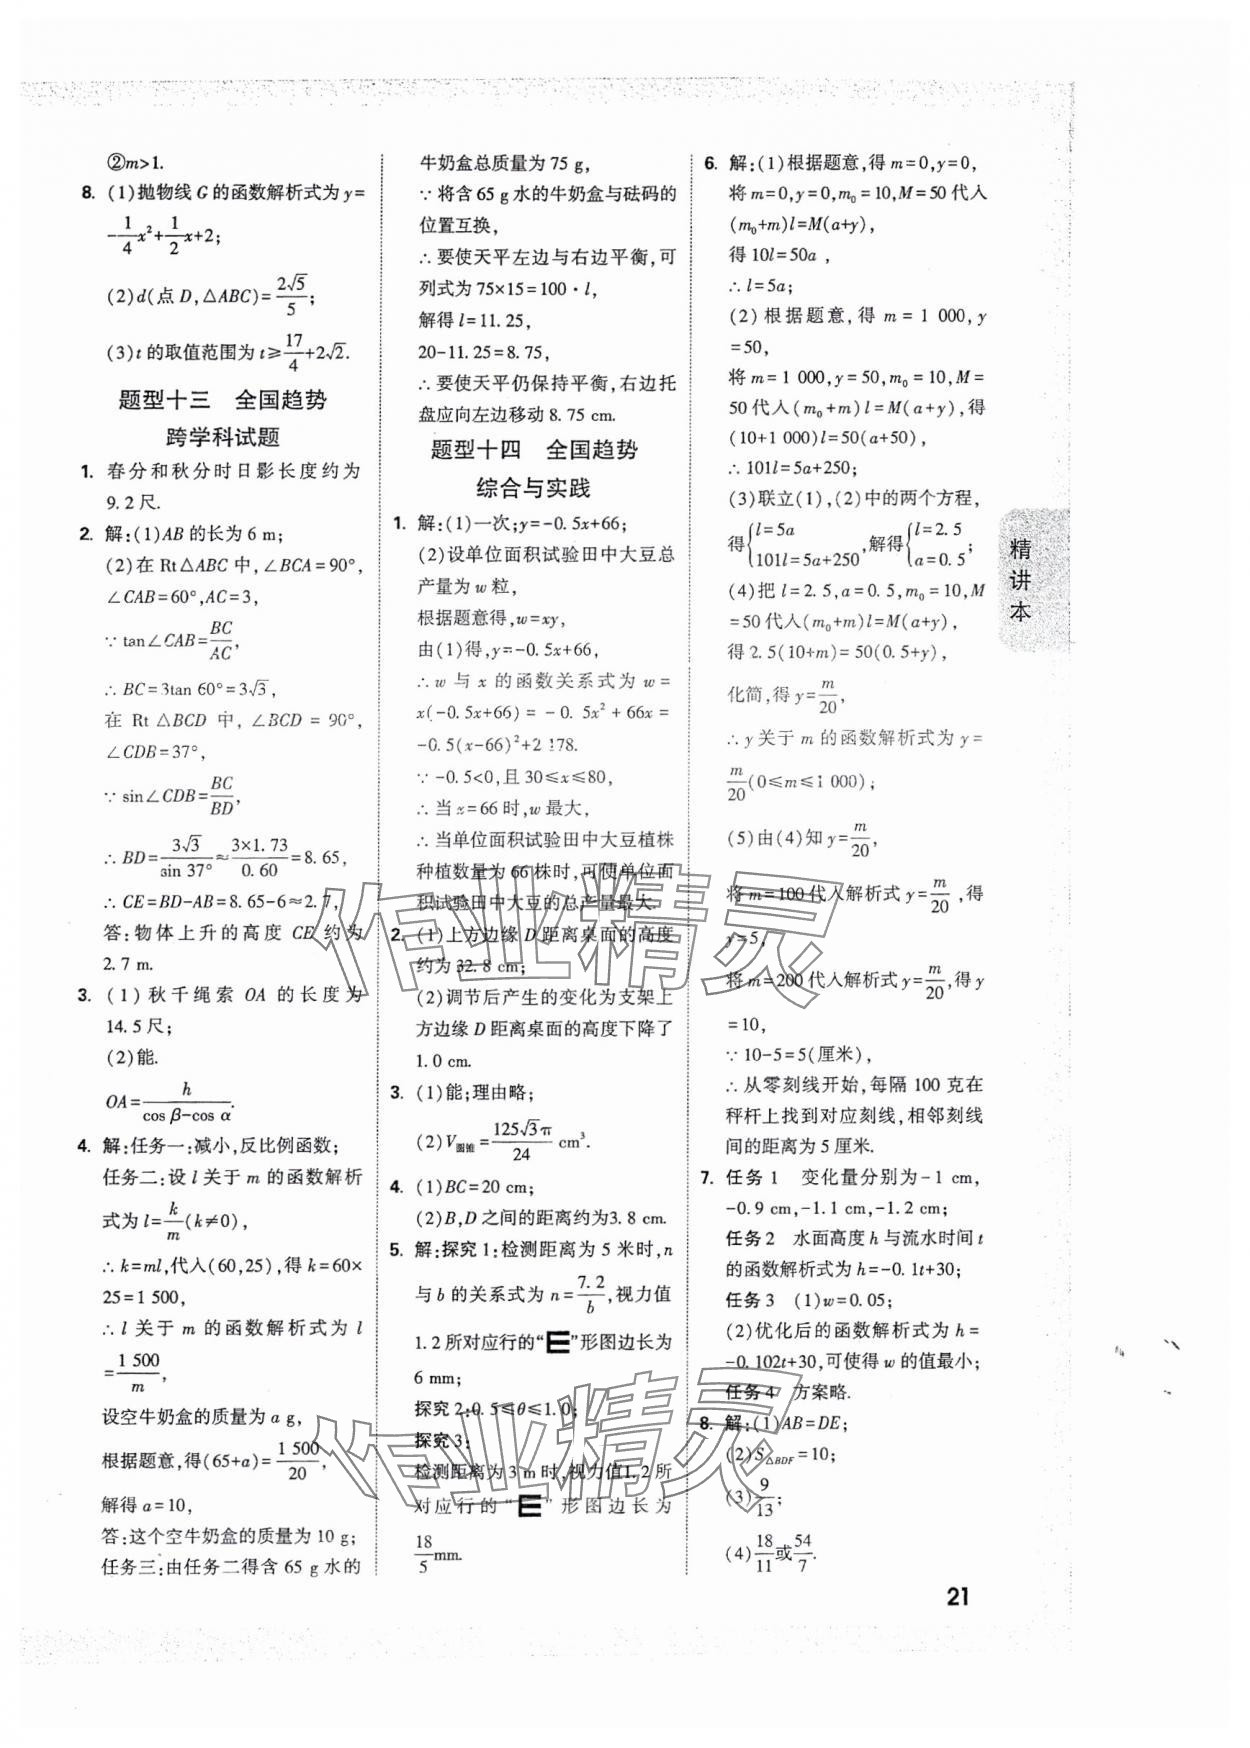 ②m>1.
8. (1)抛物线 G 的函数解析式为 y=
-1/4x²+1/2x+2;
(2)d(点 D,△ABC)=2√5/5;
(3)t 的取值范围为 t≥17/4+2√2.
题型十三 全国趋势
跨学科试题
1. 春分和秋分时日影长度约为
9.2 尺.
2. 解:(1)AB 的长为 6 m;
(2)在 Rt△ABC 中,∠BCA=90°,
∠CAB=60°,AC=3,
∵tan∠CAB=BC/AC,
∴BC=3tan 60°=3√3,
在 Rt △BCD 中,∠BCD = 90°,
∠CDB=37°,
∵sin∠CDB=BC/BD,
∴BD=3√3/sin 37°≈3×1.73/0.60=8.65,
∴CE=BD-AB=8.65-6≈2.7,
答:物体上升的高度 CE 约为
2.7 m.
3. (1)秋千绳索 OA 的长度为
14.5 尺;
(2)能.
OA=h/(cos β-cos α).
4. 解:任务一:减小,反比例函数;
任务二:设 l 关于 m 的函数解析
式为 l=k/m(k≠0),
∴k=ml,代入(60,25),得 k=60×
25=1 500,
∴l 关于 m 的函数解析式为 l
=1 500/m,
设空牛奶盒的质量为 a g,
根据题意,得(65+a)=1 500/20,
解得 a=10,
答:这个空牛奶盒的质量为 10 g;
任务三:由任务二得含 65 g 水的
牛奶盒总质量为 75 g,
∵将含 65 g 水的牛奶盒与砝码的
位置互换,
∴要使天平左边与右边平衡,可
列式为 75×15=100·l,
解得 l=11.25,
20-11.25=8.75,
∴要使天平仍保持平衡,右边托
盘应向左边移动 8.75 cm.
题型十四 全国趋势
综合与实践
1. 解:(1)一次;y=-0.5x+66;
(2)设单位面积试验田中大豆总
产量为 w 粒,
根据题意得,w=xy,
由(1)得,y=-0.5x+66,
∴w 与 x 的函数关系式为 w=
x(-0.5x+66)=-0.5x²+66x=
-0.5(x-66)²+2 178.
∵-0.5<0,且 30≤x≤80,
∴当 x=66 时,w 最大,
∴当单位面积试验田中大豆植株
种植数量为 66 株时,可使单位面
积试验田中大豆的总产量最大.
2. (1)上方边缘 D 距离桌面的高度
约为 32.8 cm;
(2)调节后产生的变化为支架上
方边缘 D 距离桌面的高度下降了
1.0 cm.
3. (1)能;理由略;
(2)V圆锥=125√3π/24 cm³.
4. (1)BC=20 cm;
(2)B,D 之间的距离约为3.8 cm.
5. 解:探究 1:检测距离为 5 米时,n
与 b 的关系式为 n=7.2/b,视力值
1.2 所对应行的“E”形图边长为
6 mm;
探究 2:0.5≤θ≤1.0;
探究 3:
检测距离为 3 m 时,视力值1.2 所
对应行的“E”形图边长为
18/5 mm.
6. 解:(1)根据题意,得 m=0,y=0,
将 m=0,y=0,m₀=10,M=50 代入
(m₀+m)l=M(a+y),
得 10l=50a,
∴l=5a;
(2)根据题意,得 m=1 000,y
=50,
将 m=1 000,y=50,m₀=10,M=
50 代入(m₀+m)l=M(a+y),得
(10+1 000)l=50(a+50),
∴101l=5a+250;
(3)联立(1),(2)中的两个方程,
得{l=5a 101l=5a+250,解得{l=2.5 a=0.5;
(4)把 l=2.5,a=0.5,m₀=10,M
=50 代入(m₀+m)l=M(a+y),
得 2.5(10+m)=50(0.5+y),
化简,得 y=m/20,
∴y 关于 m 的函数解析式为 y=
m/20(0≤m≤1 000);
(5)由(4)知 y=m/20,
将 m=100 代入解析式 y=m/20,得
y=5,
将 m=200 代入解析式 y=m/20,得 y
=10,
∵10-5=5(厘米),
∴从零刻线开始,每隔 100 克在
秤杆上找到对应刻线,相邻刻线
间的距离为 5 厘米.
7. 任务 1 变化量分别为-1 cm,
-0.9 cm,-1.1 cm,-1.2 cm;
任务 2 水面高度 h 与流水时间 t
的函数解析式为 h=-0.1t+30;
任务 3 (1)w=0.05;
(2)优化后的函数解析式为 h=
-0.102t+30,可使得 w 的值最小;
任务 4 方案略.
8. 解:(1)AB=DE;
(2)S△BDF=10;
(3)9/13;
(4)18/11或54/7.
精讲本
21
作业精灵
作业精灵